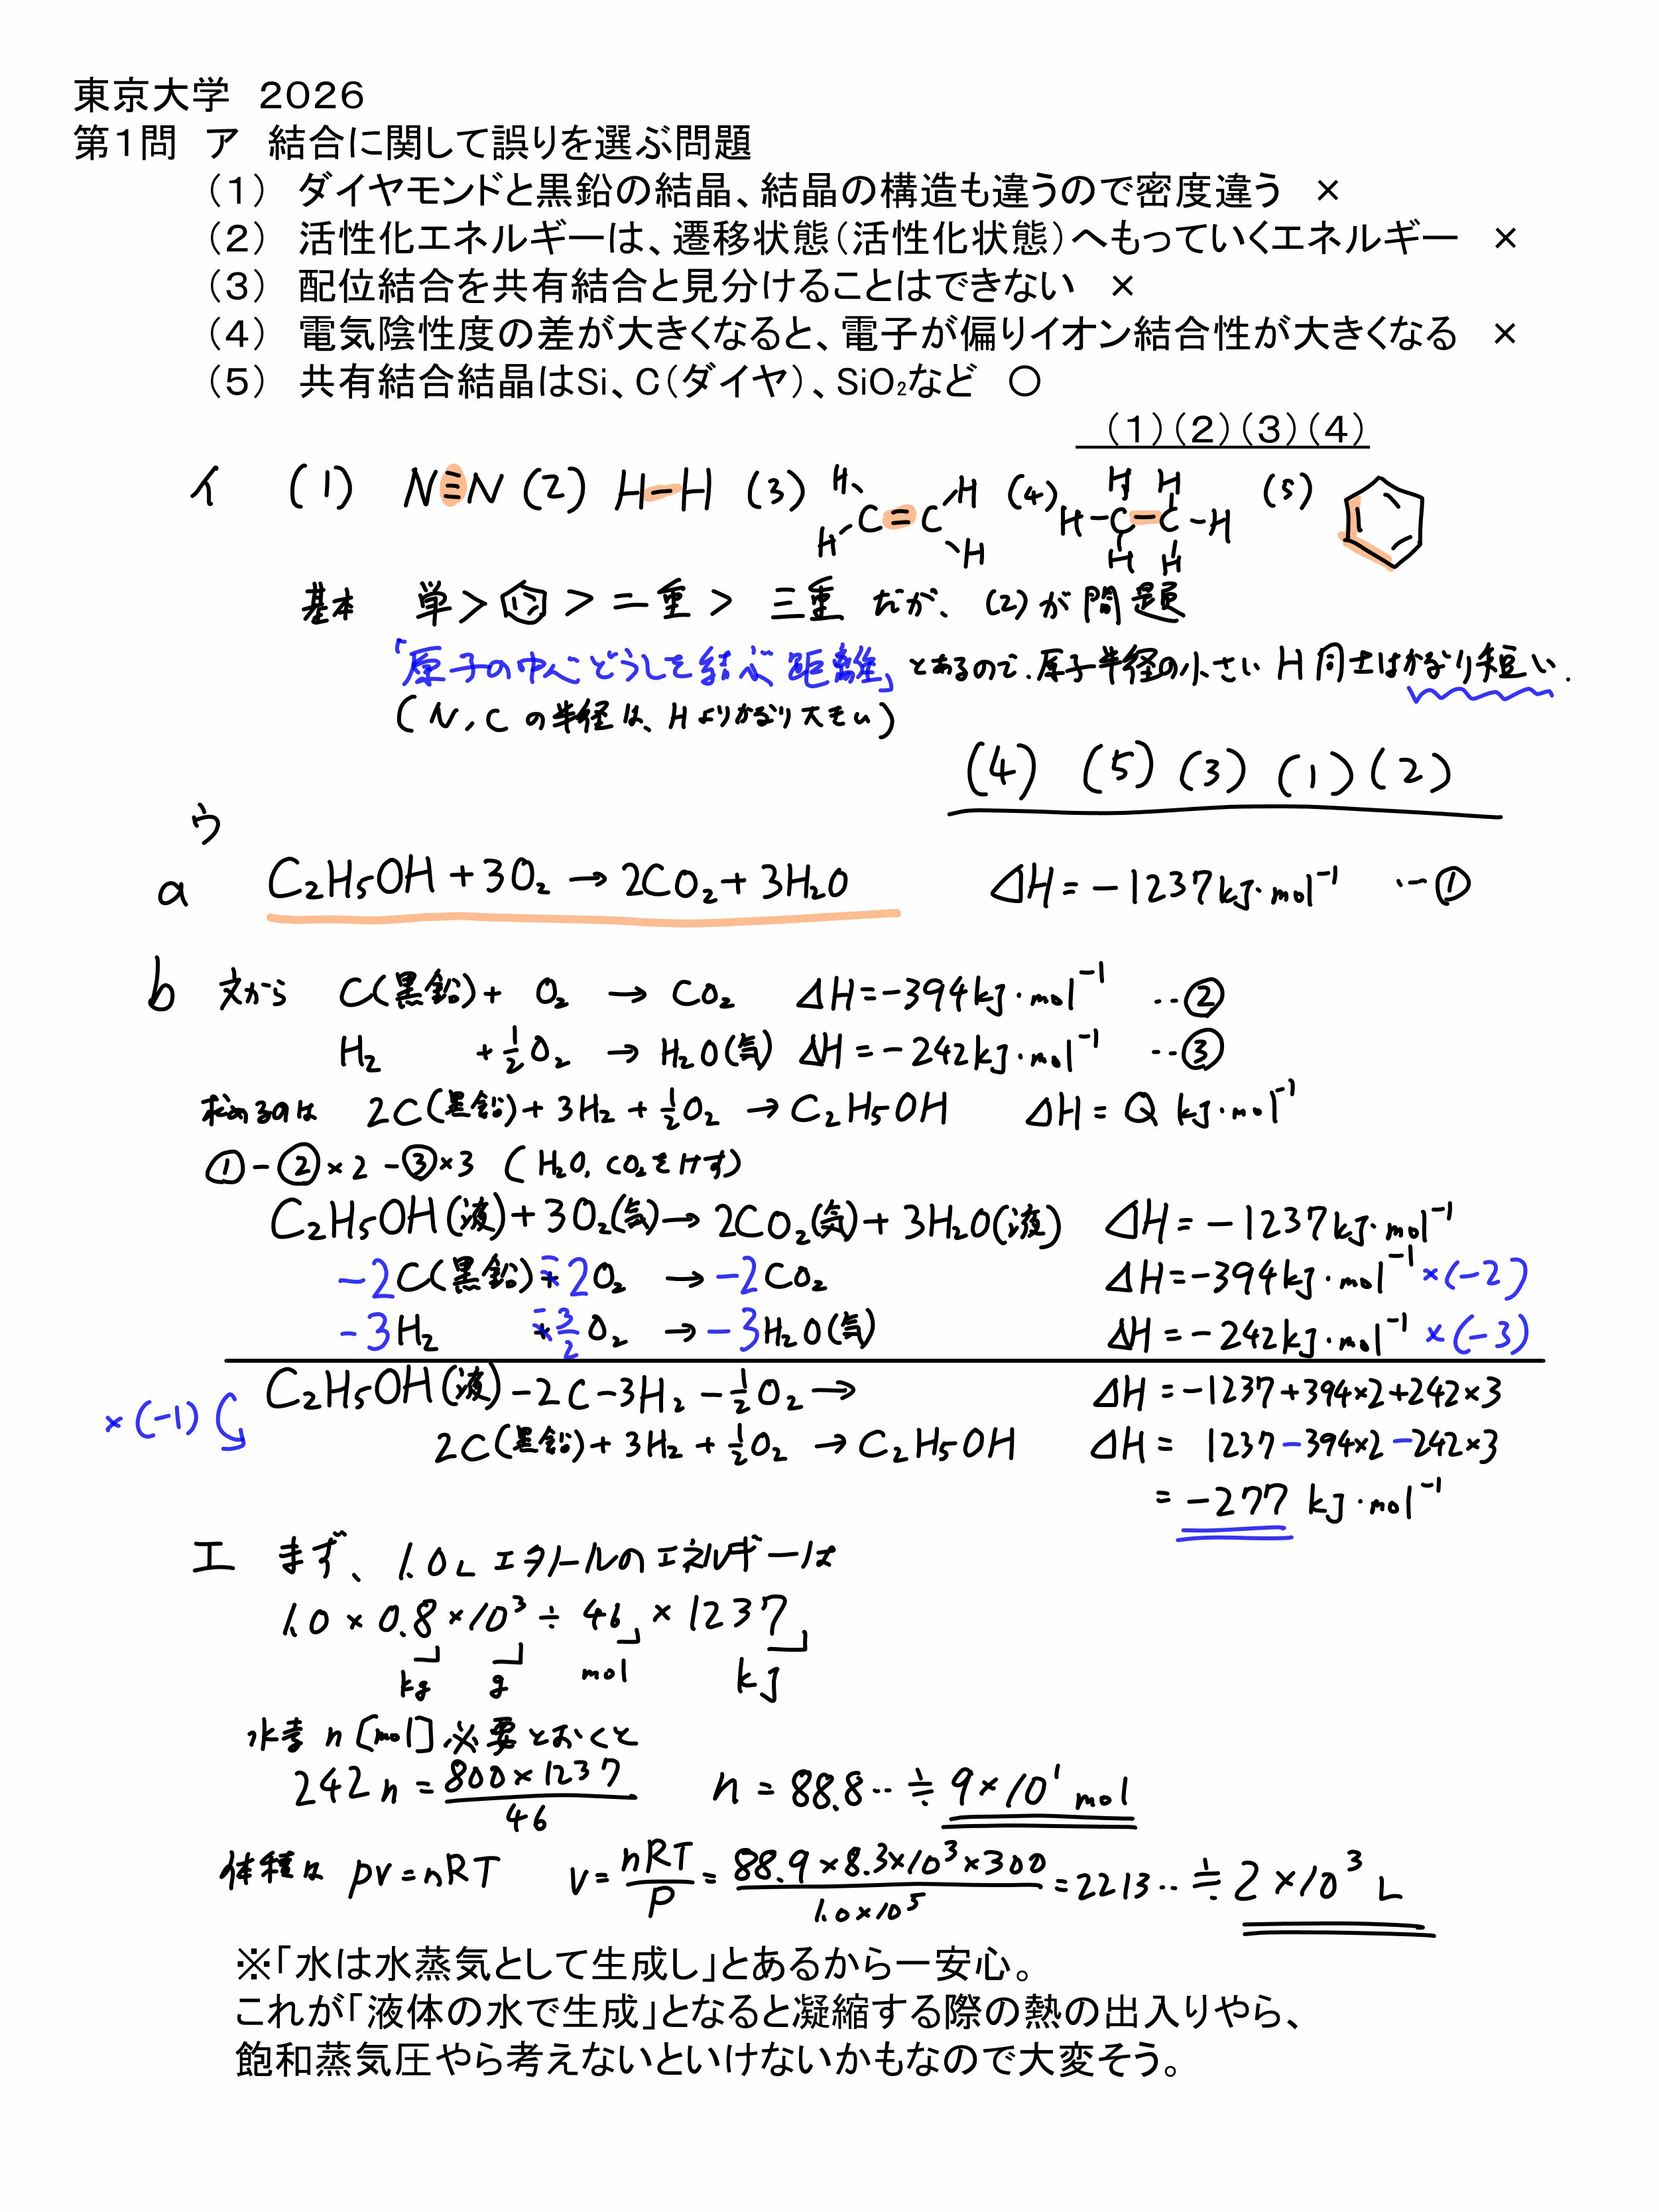 東京大学　２０２６
第１問　ア　結合に関して誤りを選ぶ問題
（１）　ダイヤモンドと黒鉛の結晶、結晶の構造も違うので密度違う　×
（２）　活性化エネルギーは、遷移状態（活性化状態）へもっていくエネルギー　×
（３）　配位結合を共有結合と見分けることはできない　×
（４）　電気陰性度の差が大きくなると、電子が偏りイオン結合性が大きくなる　×
（５）　共有結合結晶はSi、C（ダイヤ）、SiO₂など　〇
（１）（２）（３）（４）
イ (1) N≡N (2) H-H (3) H H C=C H H (4) H H H-C-C-H H H (5)
基本 単> > 二重 > 三重 だが、(2)が問題
「原子の中心どうしを結ぶ距離」とあるので、原子半径の小さい H同士はかなり短い.
(N, Cの半径は、Hよりかなり大きい)
(4) (5) (3) (1) (2)
ウ
a C₂H₅OH + 3O₂ → 2CO₂ + 3H₂O ΔH = -1237kJ・mol⁻¹ …①
b 文から C(黒鉛) + O₂ → CO₂ ΔH = -394kJ・mol⁻¹ …②
H₂ + 1/2 O₂ → H₂O(気) ΔH = -242kJ・mol⁻¹ …③
求めるのは 2C(黒鉛) + 3H₂ + 1/2 O₂ → C₂H₅OH ΔH = Q kJ・mol⁻¹
① - ②×2 - ③×3 (H₂O, CO₂をけす)
C₂H₅OH(液) + 3O₂(気) → 2CO₂(気) + 3H₂O(液) ΔH = -1237kJ・mol⁻¹
-2C(黒鉛) - 2O₂ → -2CO₂ ΔH = -394kJ・mol⁻¹ ×(-2)
-3H₂ - 3/2 O₂ → -3H₂O(気) ΔH = -242kJ・mol⁻¹ ×(-3)
C₂H₅OH(液) - 2C - 3H₂ - 1/2 O₂ → ΔH = -1237+394×2+242×3
×(-1) 2C(黒鉛) + 3H₂ + 1/2 O₂ → C₂H₅OH ΔH = 1237-394×2-242×3
= -277 kJ・mol⁻¹
エ まず、1.0L エタノールのエネルギーは
1.0 × 0.8 × 10³ ÷ 46 × 1237
kg g mol kJ
水素 n [mol] 必要とおくと
242n = 800×1237/46 n = 88.8… ≒ 9×10¹ mol
体積は pv = nRT v = nRT/P = 88.9×8.3×10³×300/1.0×10⁵ = 2213… ≒ 2×10³ L
※「水は水蒸気として生成し」とあるから一安心。
これが「液体の水で生成」となると凝縮する際の熱の出入りやら、
飽和蒸気圧やら考えないといけないかもなので大変そう。